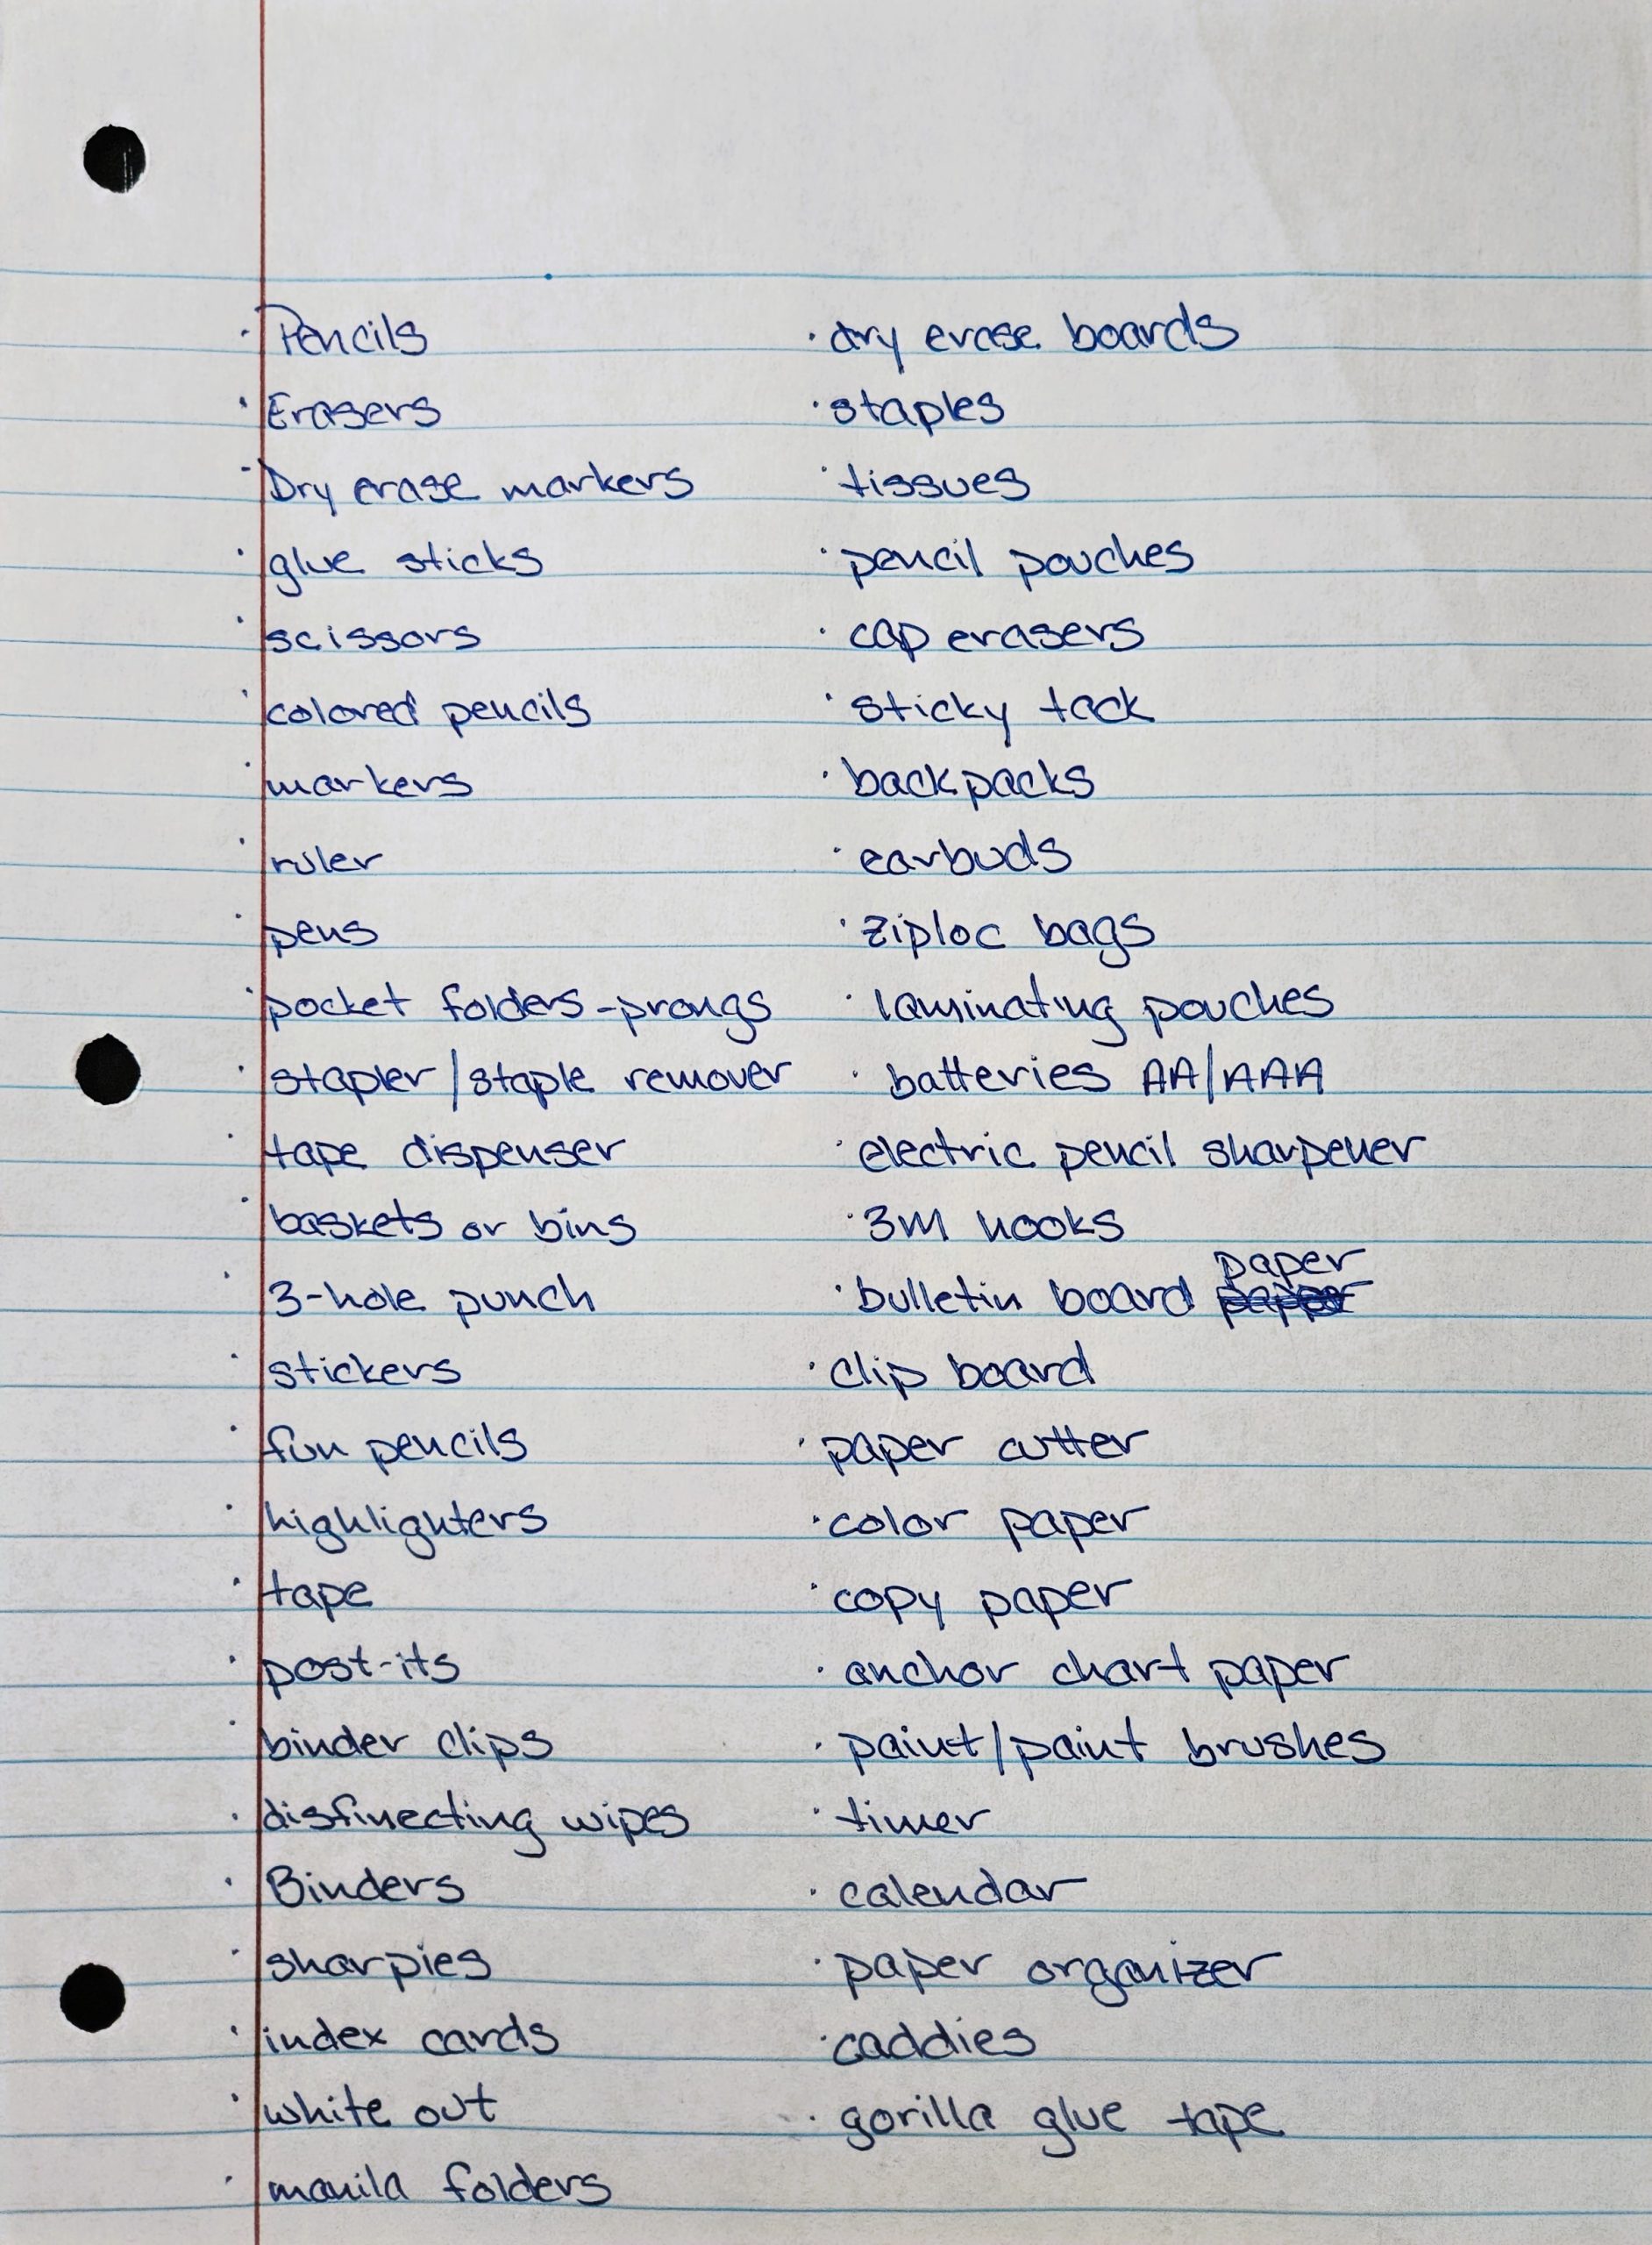 · Pencils
· Erasers
· Dry erase markers
· glue sticks
· scissors
· colored pencils
· markers
· ruler
· pens
· pocket folders-prongs
· stapler/staple remover
· tape dispenser
· baskets or bins
· 3-hole punch
· stickers
· fun pencils
· highlighters
· tape
· post-its
· binder clips
· disfinecting wipes
· Binders
· sharpies
· index cards
· white out
· manila folders
· dry erase boards
· staples
· tissues
· pencil pouches
· cap erasers
· sticky tack
· backpacks
· earbuds
· ziploc bags
· laminating pouches
· batteries AA/AAA
· electric pencil sharpener
· 3M hooks
· bulletin board paper
· clip board
· paper cutter
· color paper
· copy paper
· anchor chart paper
· paint/paint brushes
· timer
· calendar
· paper organizer
· caddies
· gorilla glue tape